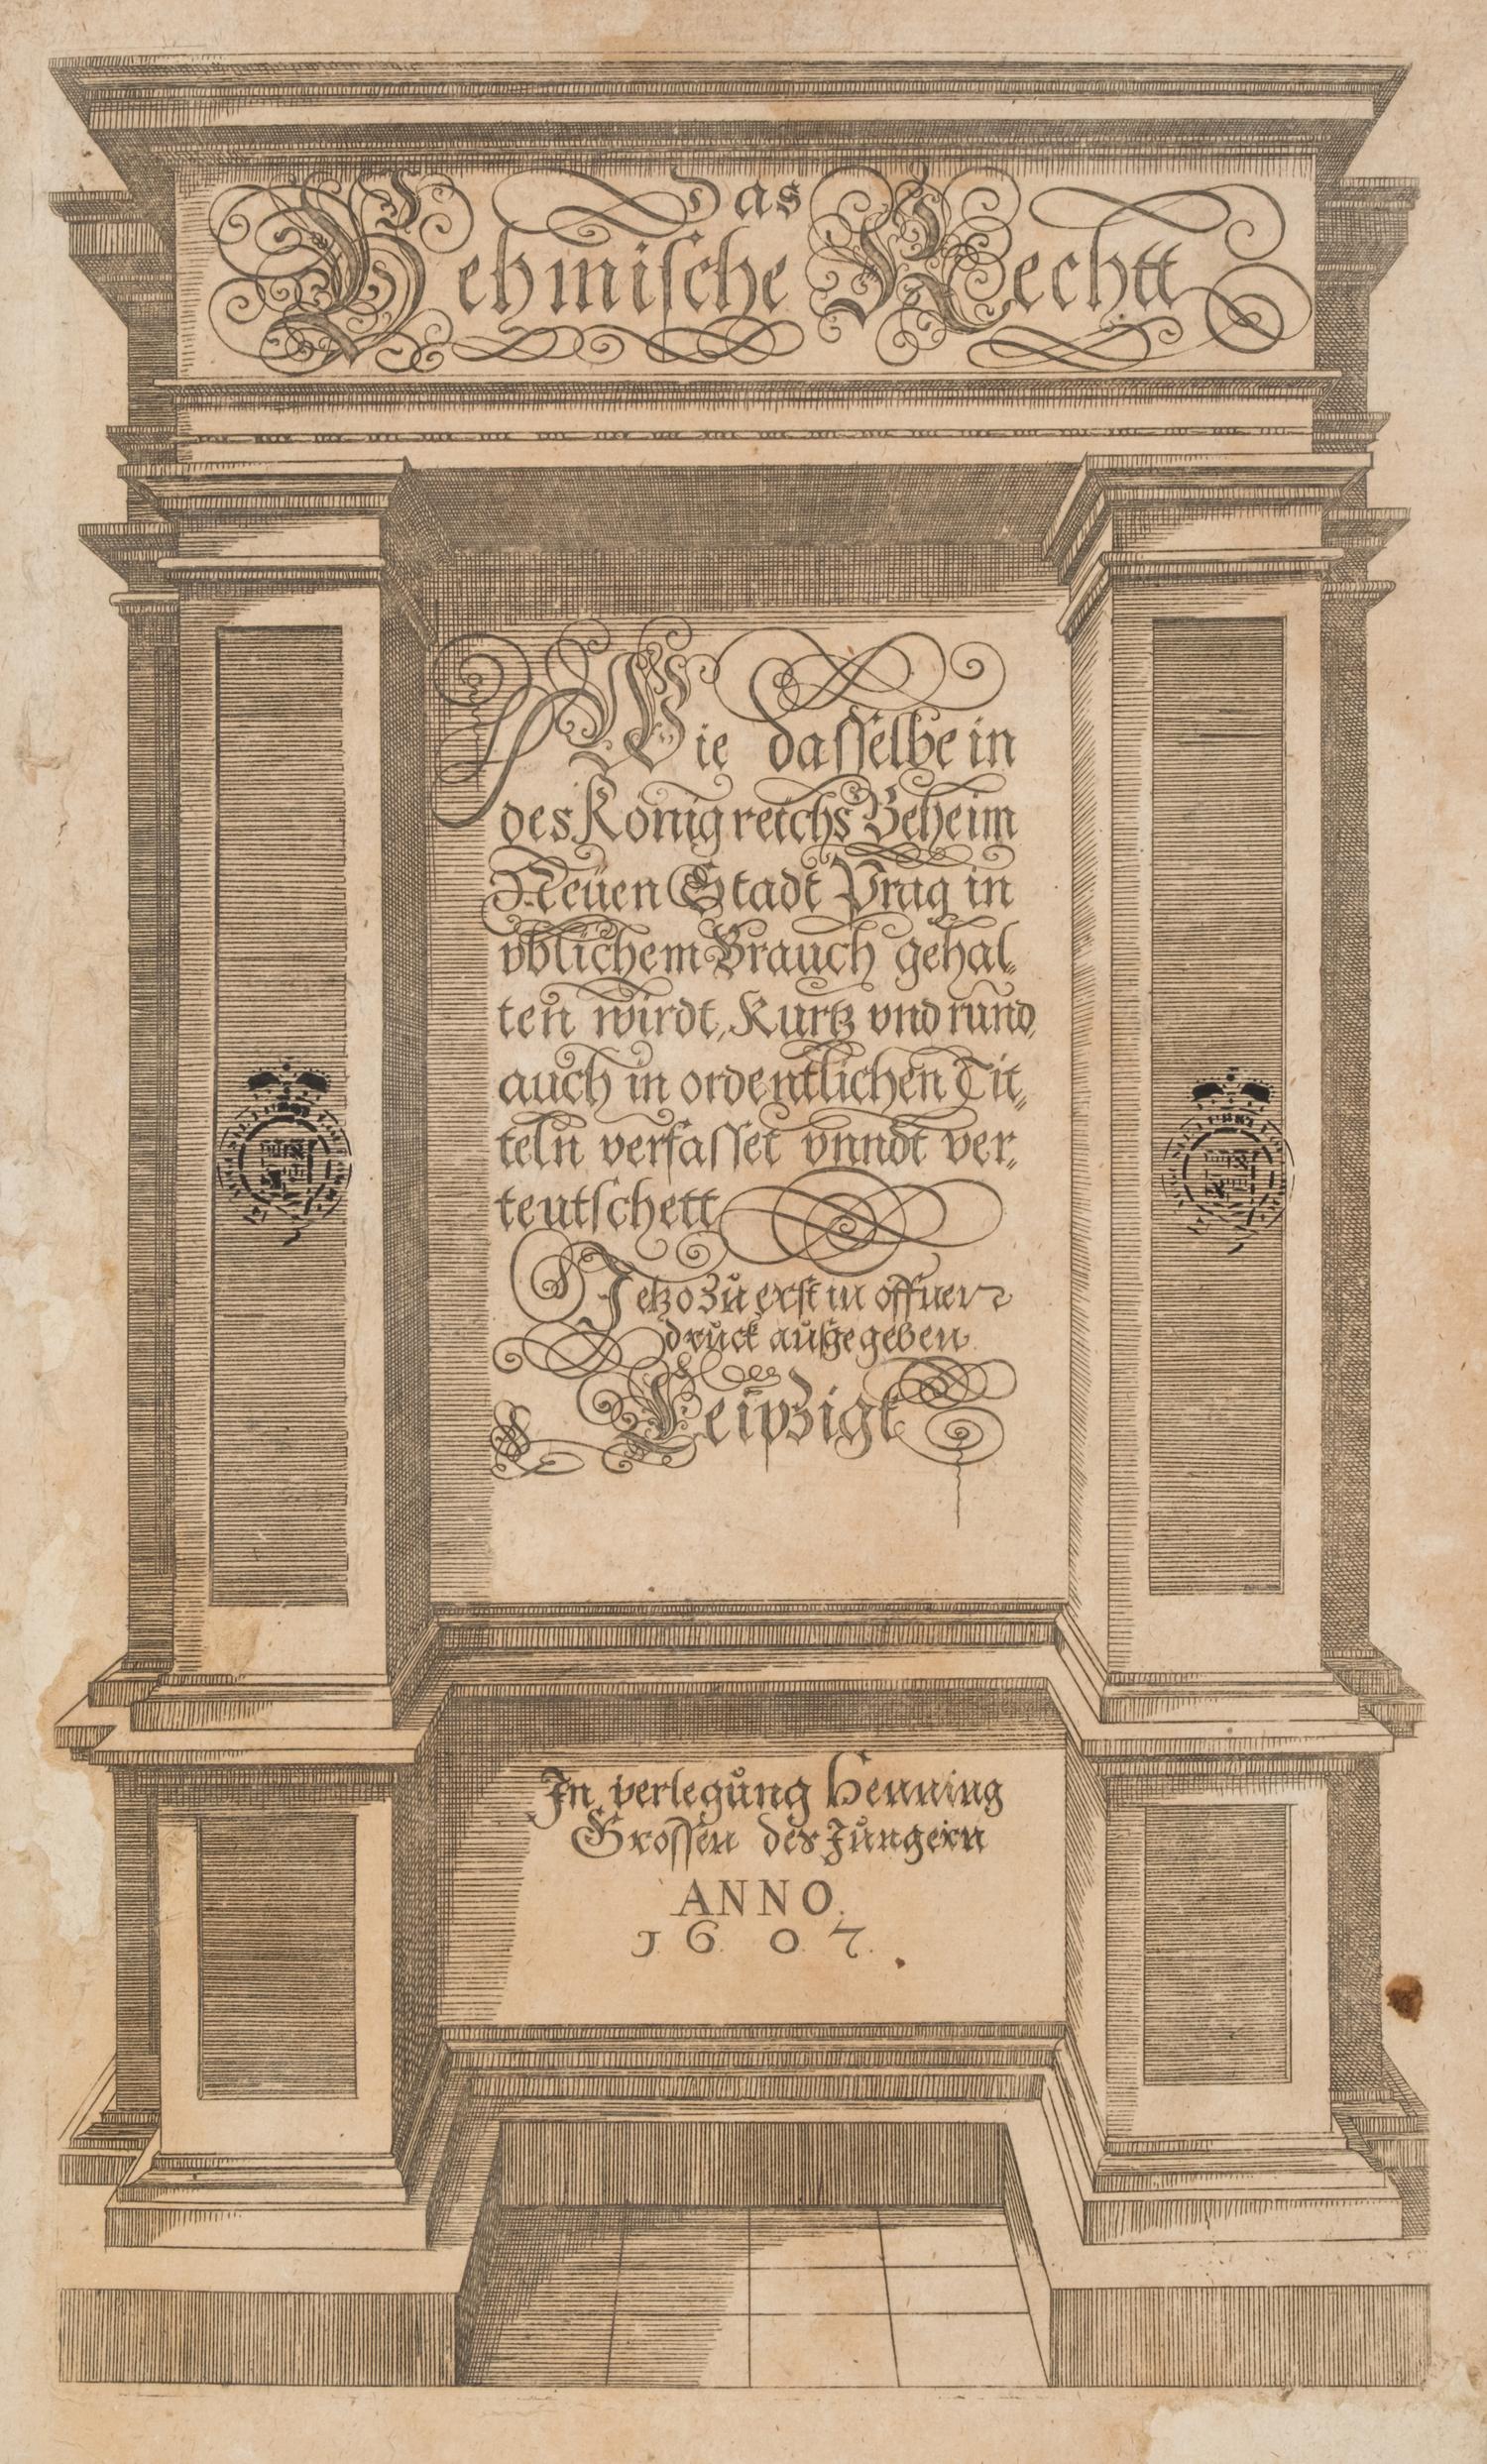 Das
Behmische Rechtt
Wie dasselbe in
des Königreichs Beheim
Neüen Stadt Prag in
vblichem Brauch gehal„
ten wirdt, Kurtz vnd rund,
auch in ordentlichen Tit„
teln verfasset vnndt ver„
teutschett
Jetzo zů erst in offner
drůck außgegeben
Leipzigk
In verlegůng Henning
Grossen des Jůngern
ANNO.
1607.